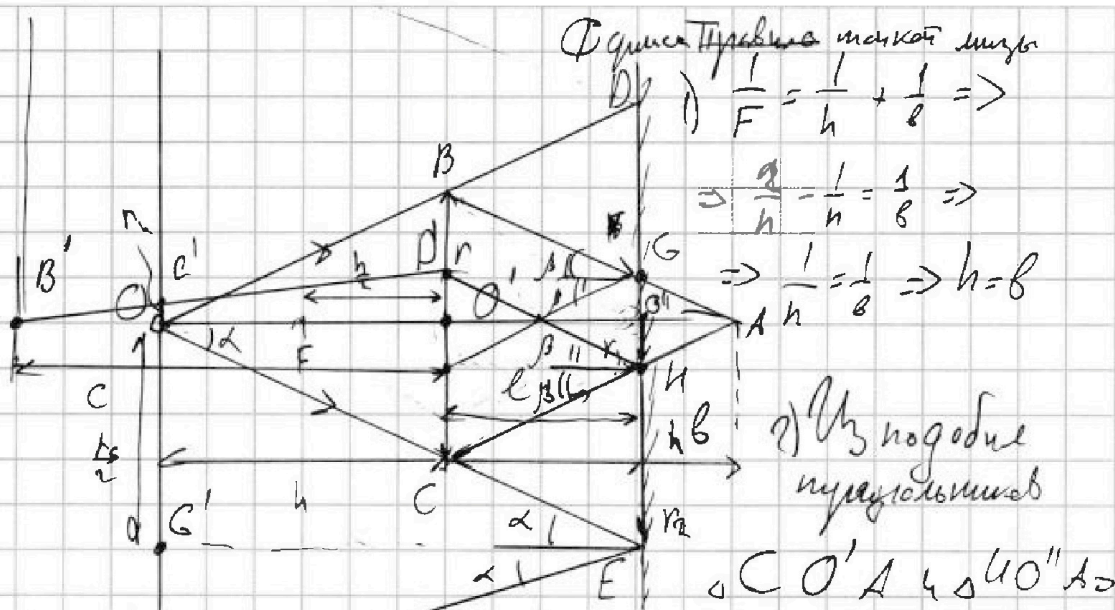 Правило тонкой линзы
1) 1/F = 1/h + 1/b =>
=> 2/h - 1/h = 1/b =>
=> 1/h = 1/b => h = b
2) Из подобия
треугольников
△CO'A и △HO''A
D
B
D'
r
G
B'
C'
O
h/2
O'
β
O''
A
α
F
β
r₁
H
C
l
β
h
b
C
G'
α
r₂
α
E